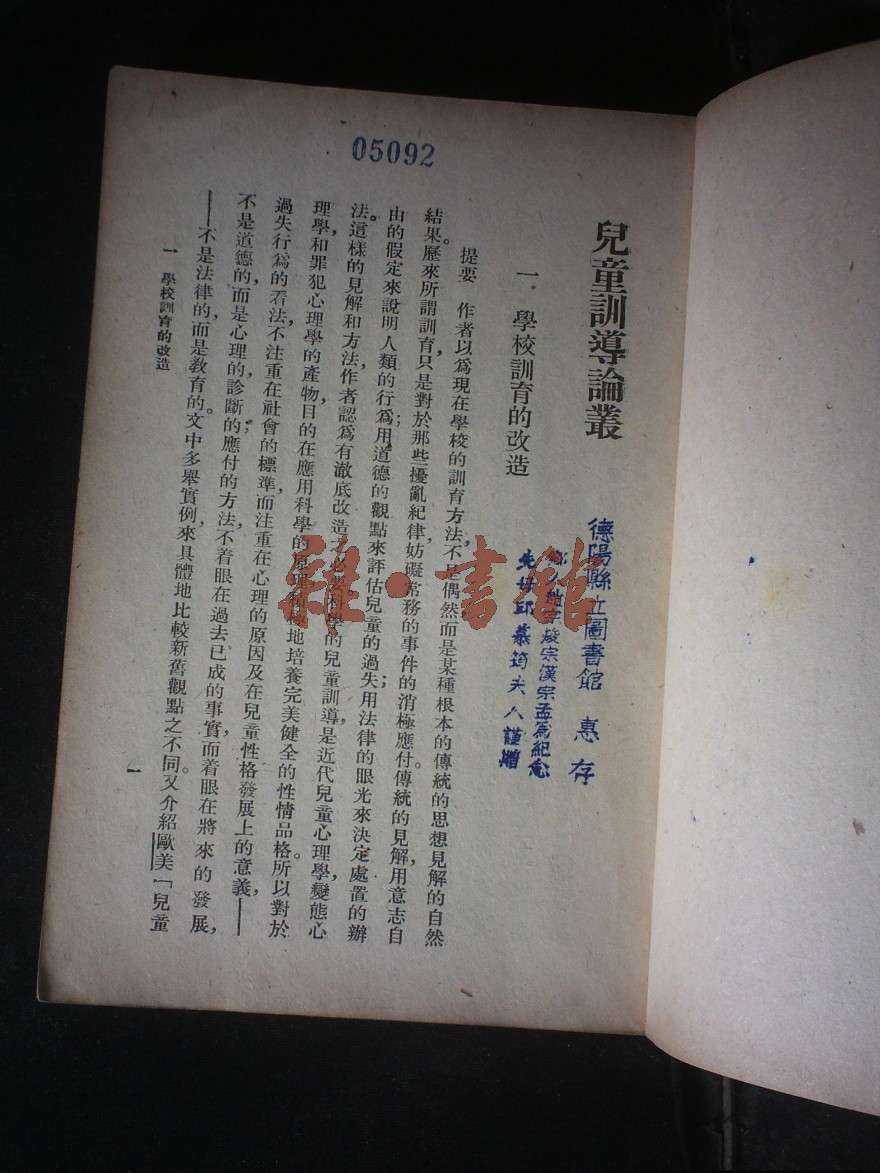 05092
兒童訓導論叢
德陽縣立圖書館 惠存
宗漢宗孟爲紀念
先母邱慕筠夫人謹贈
一 學校訓育的改造
提要 作者以爲現在學校的訓育方法，不是偶然而是某種根本的傳統的思想見解的自然
結果。歷來所謂訓育只是對於那些擾亂紀律妨礙常務的事件的消極應付。傳統的見解，用意志自
由的假定來說明人類的行爲；用道德的觀點來評估兒童的過失；用法律的眼光來決定處置的辦
法。這樣的見解和方法作者認爲有澈底改造之必要。科學的兒童訓導，是近代兒童心理學變態心
理學和罪犯心理學的產物目的在應用科學的原理積極地培養完美健全的性情品格。所以對於
過失行爲的看法，不注重在社會的標準，而注重在心理的原因及在兒童性格發展上的意義，——
不是道德的，而是心理的診斷的；應付的方法，不着眼在過去已成的事實，而着眼在將來的發展，
——不是法律的，而是教育的。文中多舉實例，來具體地比較新舊觀點之不同。又介紹歐美「兒童
一 學校訓育的改造
一
雜·書館